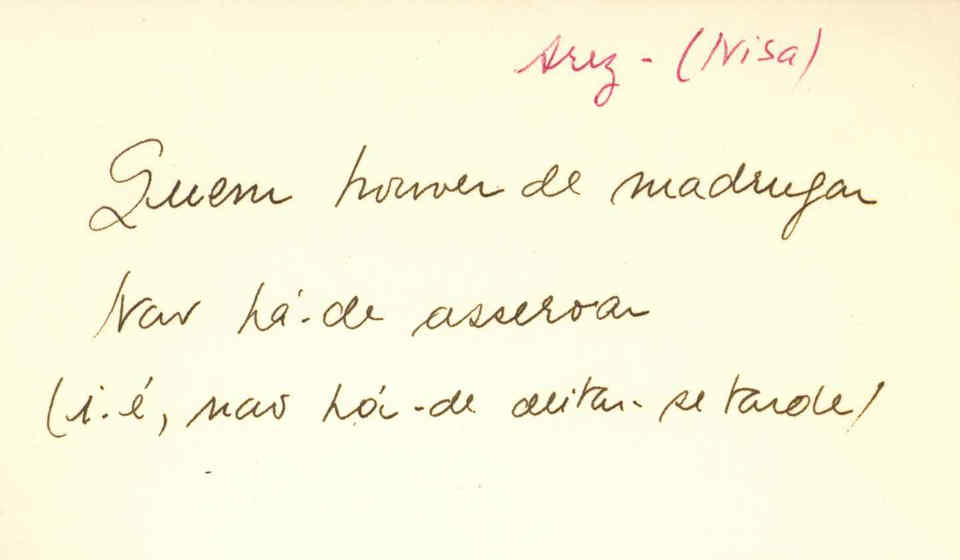 Arez - (Nisa)
Quem houver de madrugar
Nao há-de asseroar
(i.é, nao há-de deitar-se tarde)